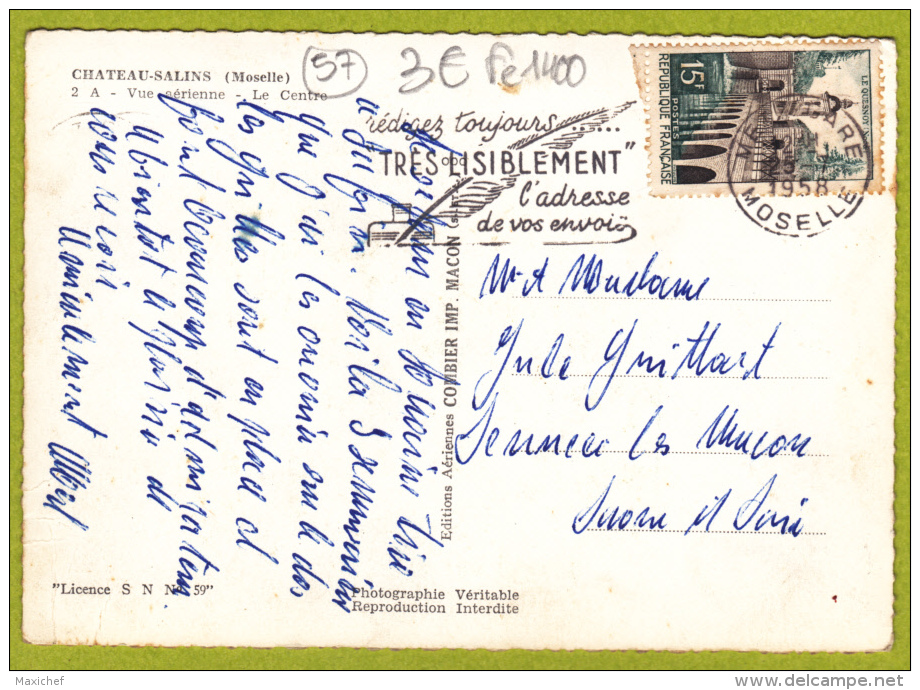 CHATEAU-SALINS (Moselle)
2 A - Vue aérienne - Le Centre
57
3€
1400
rédigez toujours......
"TRÈS LISIBLEMENT"
l'adresse
de vos envois
15F
POSTES
REPUBLIQUE FRANÇAISE
LE QUESNOY
GARE
1958
MOSELLE
Mr et Madame
Jule Guillart
Sennecé les Macon
Saone et Loire
Editions Aériennes COMBIER IMP. MACON
Voilà 3 semaines
que j'ai les ennuis sur le dos
les grilles sont en place et
font beaucoup d'admirateurs.
A bientot le plaisir de
vous revoir
Amicalement Albert
"Licence S N N° 59"
Photographie Véritable
Reproduction Interdite
Maxichef
delcampe.net